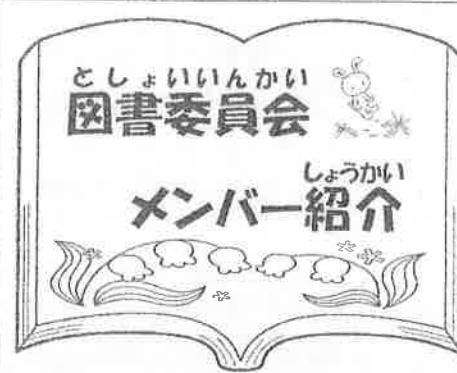 としょいいんかい
図書委員会
しょうかい
メンバー紹介